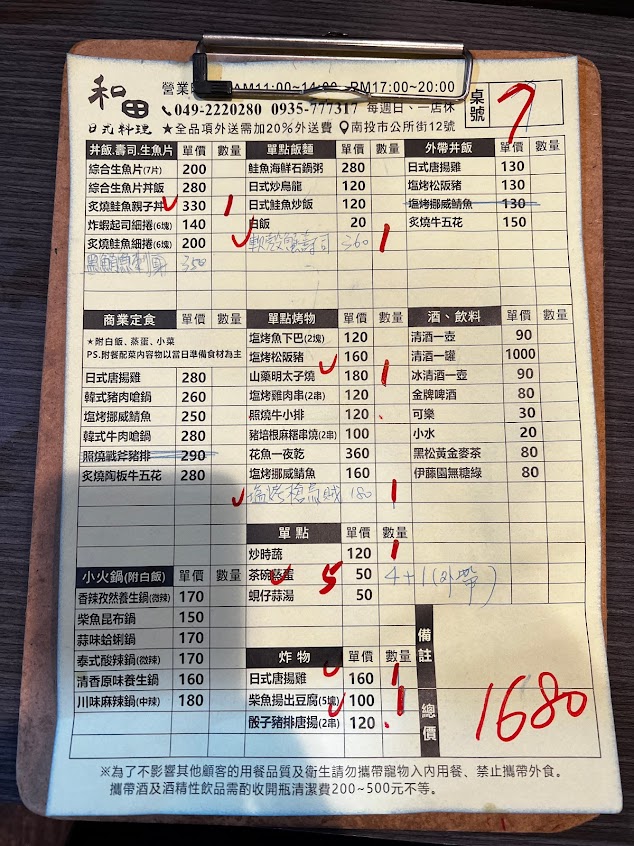 和田
日式料理
營業時 AM11:00~14:00 PM17:00~20:00
049-2220280 0935-777317 每週日、一店休
★全品項外送需加20%外送費 南投市公所街12號
桌號
7
丼飯.壽司.生魚片 單價 數量
綜合生魚片(7片) 200
綜合生魚片丼飯 280
炙燒鮭魚親子丼 330 1
炸蝦起司細捲(6塊) 140
炙燒鮭魚細捲(6塊) 200
350
單點飯麵 單價 數量
鮭魚海鮮石鍋粥 280
日式炒烏龍 120
日式鮭魚炒飯 120
白飯 20
軟殼蟹壽司 360 1
外帶丼飯 單價 數量
日式唐揚雞 130
塩烤松阪豬 130
塩烤挪威鯖魚 130
炙燒牛五花 150
商業定食 單價 數量
★附白飯、蒸蛋、小菜
PS.附餐配菜內容物以當日準備食材為主
日式唐揚雞 280
韓式豬肉嗆鍋 260
塩烤挪威鯖魚 250
韓式牛肉嗆鍋 280
照燒戰斧豬排 290
炙燒陶板牛五花 280
單點烤物 單價 數量
塩烤魚下巴(2塊) 120
塩烤松阪豬 160
山藥明太子燒 180 1
塩烤雞肉串(2串) 120
照燒牛小排 120
豬培根麻糬串燒(2串) 100
花魚一夜乾 360
塩烤挪威鯖魚 160
塩烤槍烏賊 180 1
酒、飲料 單價 數量
清酒一壺 90
清酒一罐 1000
冰清酒一壺 90
金牌啤酒 80
可樂 30
小水 20
黑松黃金麥茶 80
伊藤園無糖綠 80
單點 單價 數量
炒時蔬 120 1
茶碗蒸蛋 5 50 4+1(外帶)
蜆仔蒜湯 50
小火鍋(附白飯) 單價 數量
香辣孜然養生鍋(微辣) 170
柴魚昆布鍋 150
蒜味蛤蜊鍋 170
泰式酸辣鍋(微辣) 170
清香原味養生鍋 160
川味麻辣鍋(中辣) 180
炸物 單價 數量
日式唐揚雞 160 1
柴魚揚出豆腐(5塊) 100 1
骰子豬排唐揚(2串) 120
備註
總價
1680
※為了不影響其他顧客的用餐品質及衛生請勿攜帶寵物入內用餐、禁止攜帶外食。
攜帶酒及酒精性飲品需酌收開瓶清潔費200~500元不等。